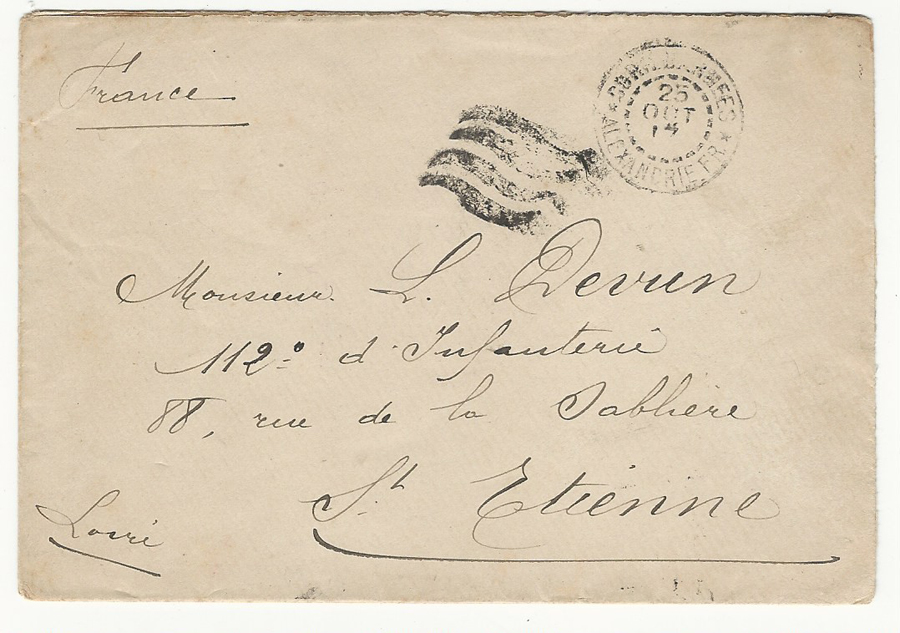 France
CORR. D. ARMEES
25
OCT
ALEXANDRIE FR
Monsieur L. Devun
112º d'Infanterie
88, rue de la Sablière
St Etienne
Loire